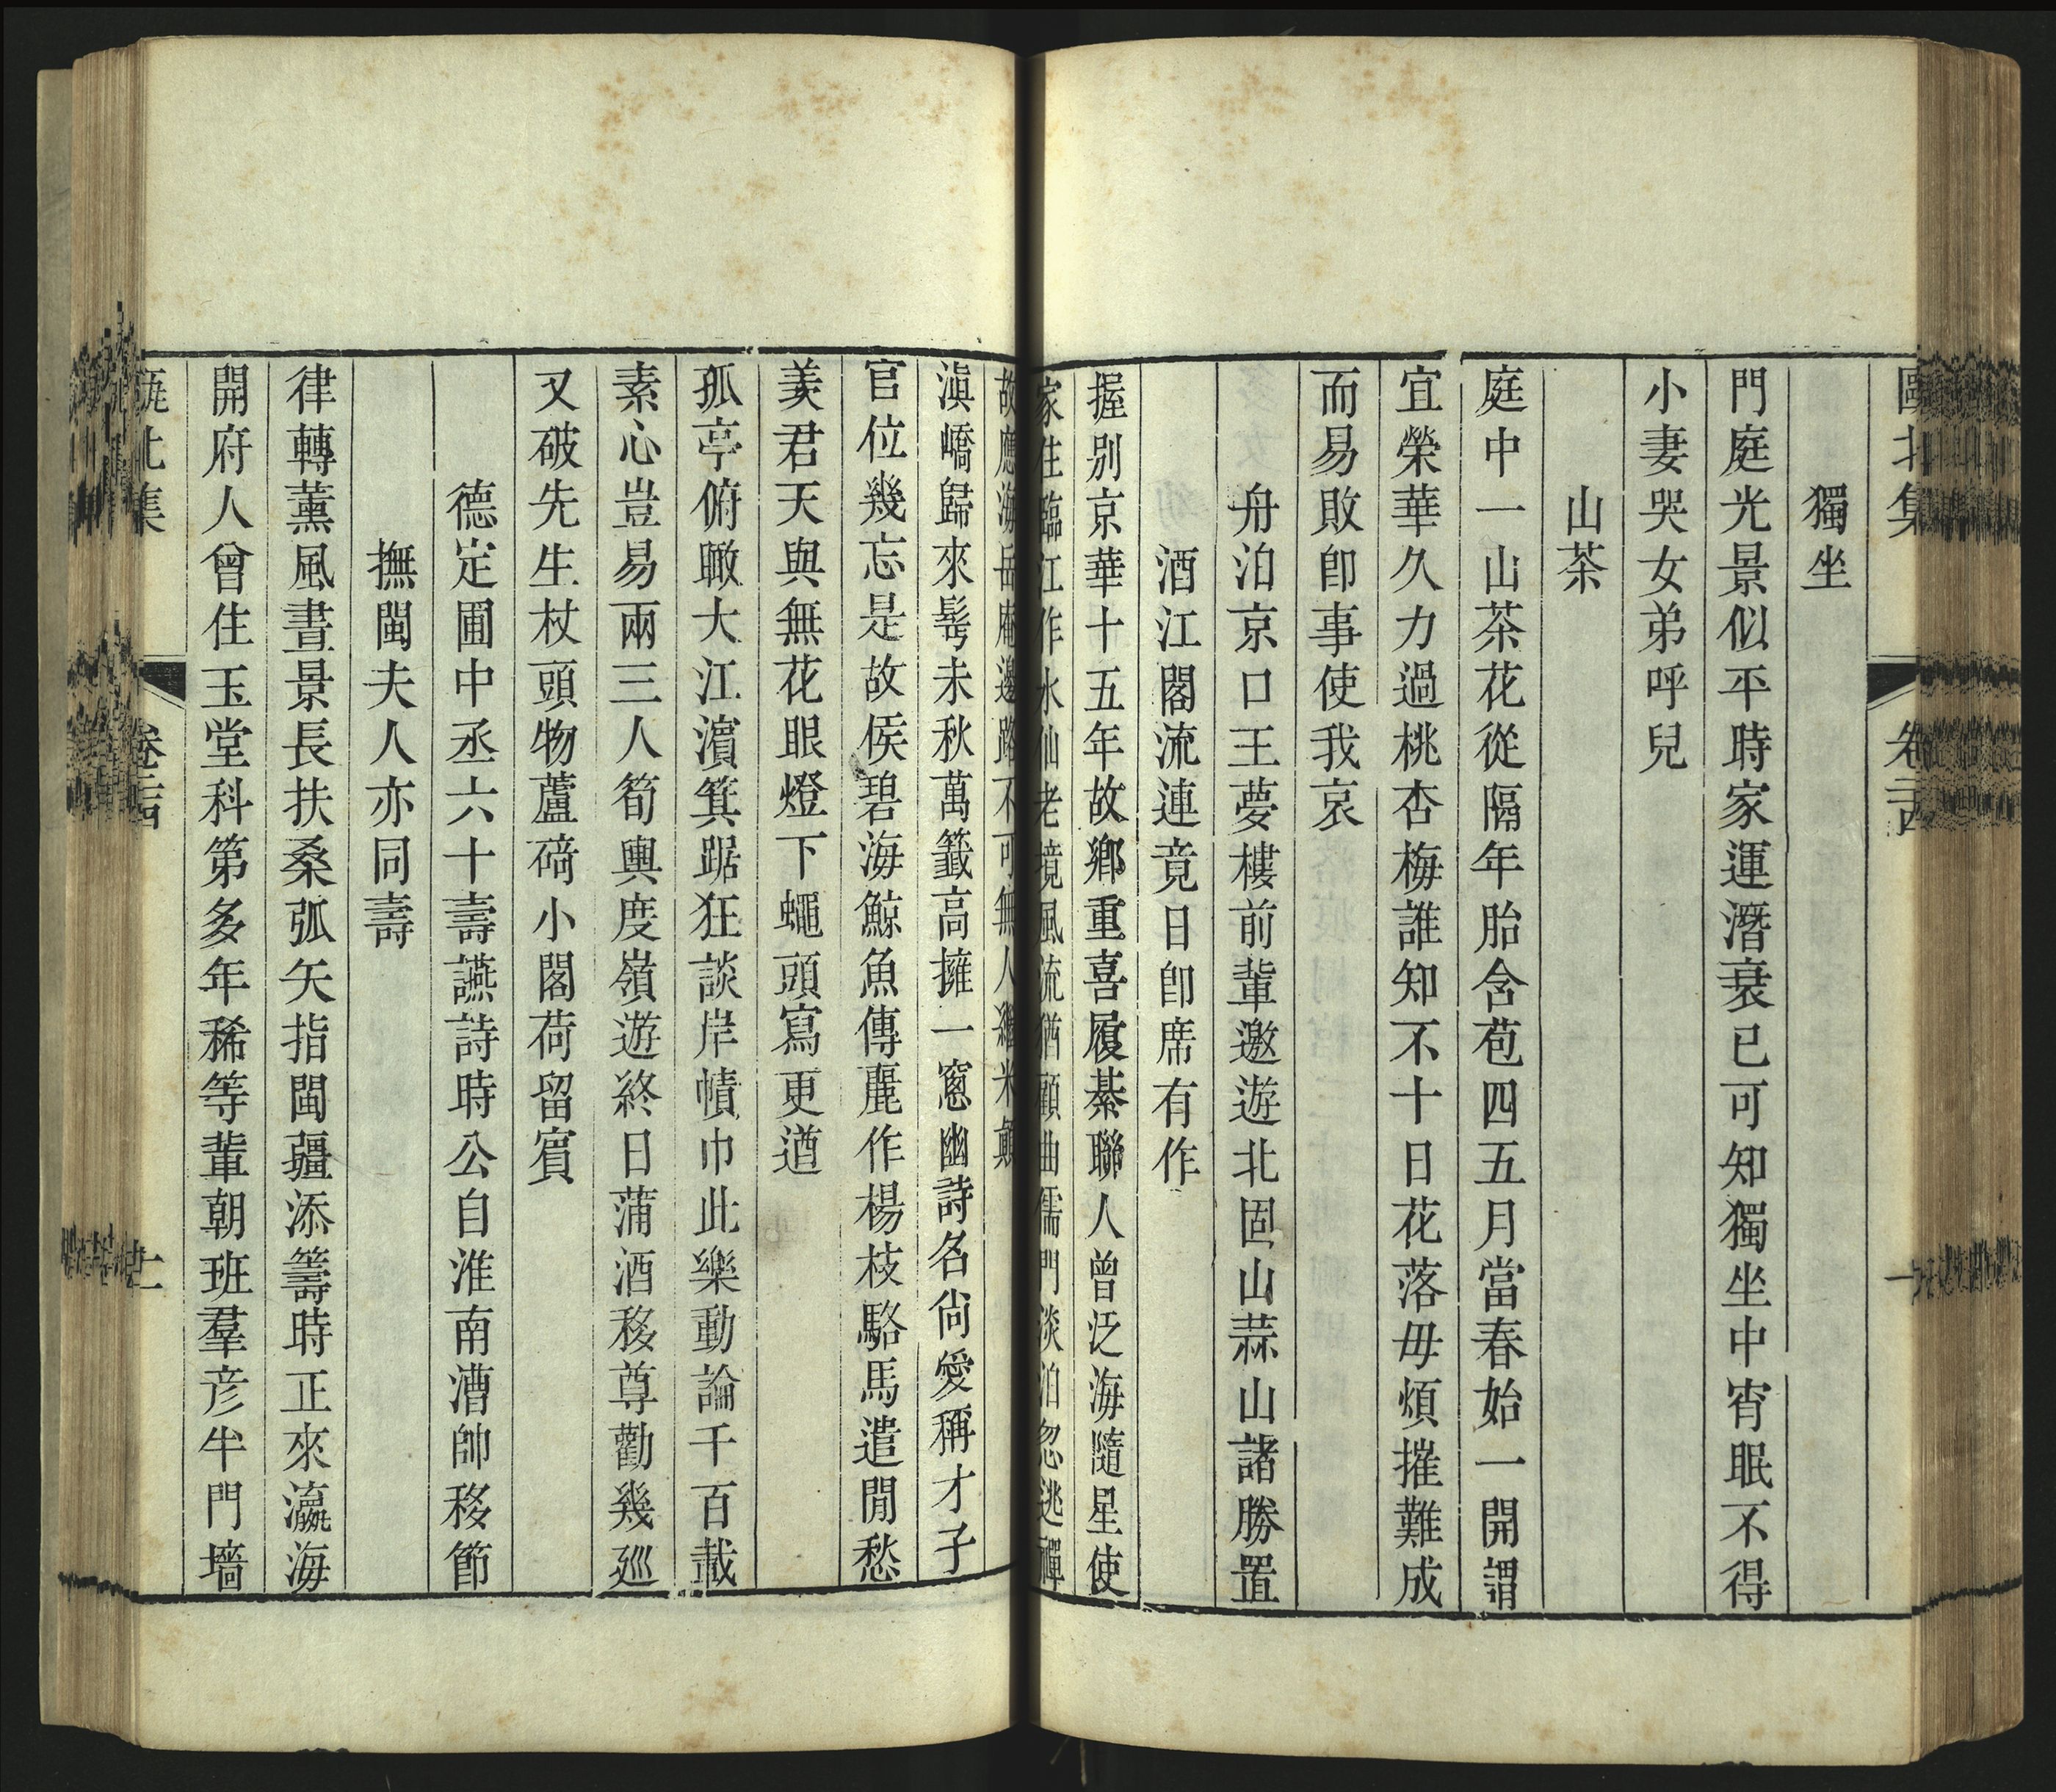 獨坐
門庭光景似平時家運潛衰已可知獨坐中宵眠不得
小妻哭女弟呼兒
山茶
庭中一山茶花從隔年胎含苞四五月當春始一開謂
宜榮華久力過桃杏梅誰知不十日花落毋煩摧難成
而易敗卽事使我哀
舟泊京口王夢樓前輩邀遊北固山蒜山諸勝置
酒江閣流連竟日卽席有作
握別京華十五年故鄉重喜履綦聯人曾泛海隨星使
家住臨江作水仙老境風流猶顧曲儒門淡泊忽逃禪
故應海岳庵邊路不可無人繼米顛
滇嶠歸來髩未秋萬籤高擁一窻幽詩名尙愛稱才子
官位幾忘是故侯碧海鯨魚傳麗作楊枝駱馬遣閒愁
羨君天與無花眼燈下蠅頭寫更遒
孤亭俯瞰大江濵箕踞狂談岸幘巾此樂動論千百載
素心豈易兩三人筍輿度嶺遊終日蒲酒移尊勸幾廵
又破先生杖頭物蘆碕小閣荷留賓
德定圃中丞六十壽讌詩時公自淮南漕帥移節
撫閩夫人亦同壽
律轉薰風晝景長扶桑弧矢指閩疆添籌時正來瀛海
開府人曾住玉堂科第多年稀等輩朝班羣彥半門墻
甌北集